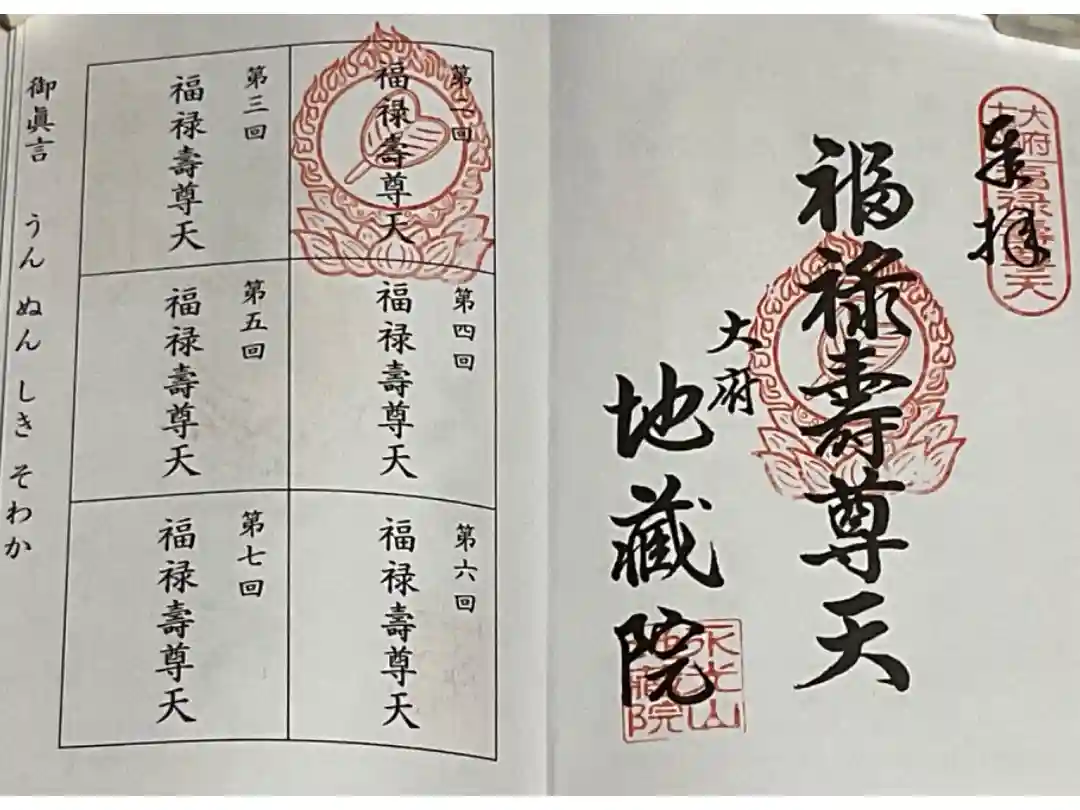 奉拝
福禄壽尊天
大府
地藏院
永光山
地蔵院
第二回
福禄壽尊天
第三回
福禄壽尊天
第四回
福禄壽尊天
第五回
福禄壽尊天
第六回
福禄壽尊天
第七回
福禄壽尊天
御眞言 うん ぬん しき そわか